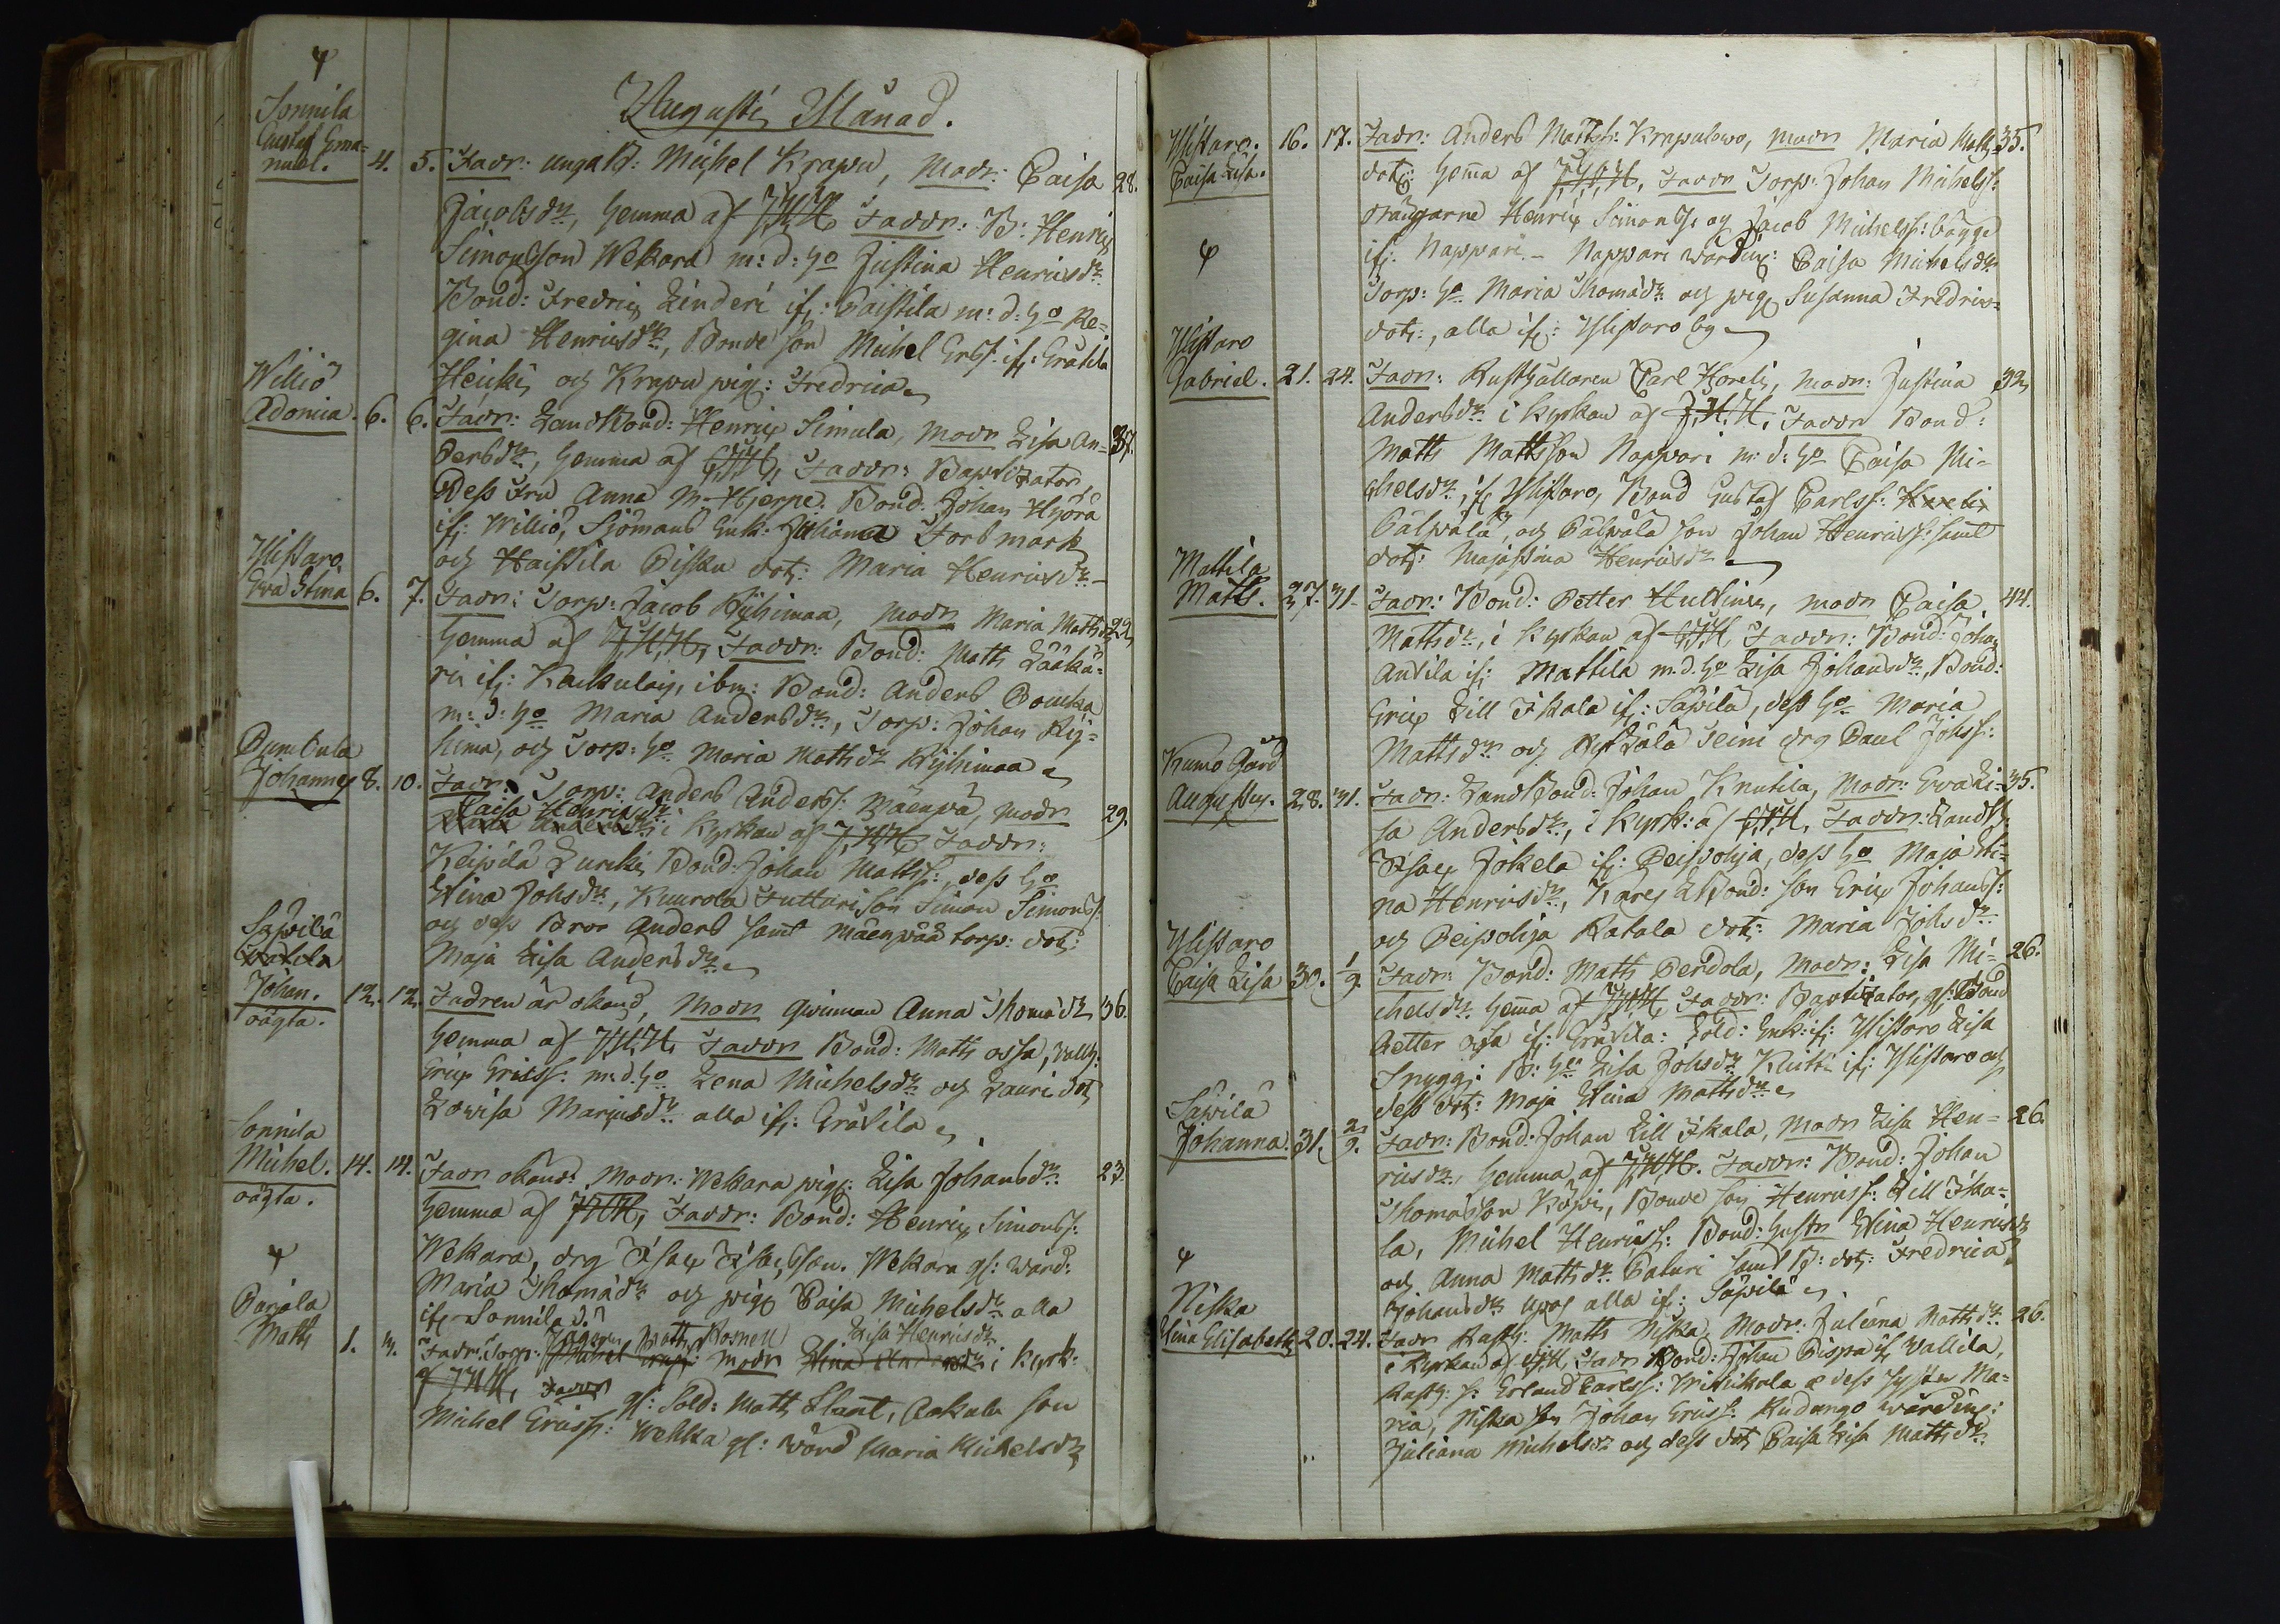 Augusti Månad.
Sonnila
Gustaf Ema=
nuel. 4. 5. Fadr: unga B: Michel Krapu, Modr: Caisa 28.
Jacobsdr, hemma af JHH Faddr: B: Henric
Simonsson Wekara m: d: ho Justina Henricsdr
Bond: Fredric Linderi ifr: Caistila m: d: ho Re=
gina Henricsdr, Bonde son Michel Ers: ifr: Eräkila
Heicki och Krapu pig: Fredrica
Williö
Adonia. 6. 6. Fadr: Landbond: Henric Simula, Modr Lisa An= 37.
dersdr, hemma af JHH, Faddr: Baptizator,
Dess Fru Anna M. Hjerpe. Bond: Johan Hyörä
ifr: Williö, Sjömans Enk: Juliana Storbmark
och Haistila Piska dotr: Maria Henricsdr
Ylistaro,
Eva Stina 6. 7. Fadr: Torp: Jacob Ryhimaa, Modr Maria Mathsd 22,
hemma af JHH, Faddr: Bond: Matts Lääkä=
ri ifr: Kackulais, ibm: Bond: Anders Pomka
m: d: ho Maria Andersdr, Torp: Johan Ryj=
hima, och Torp: ho Maria Mattsdr Ryhimaa
Pumbula
Johannes 8. 10. Fadr: Torp: Anders Anderss: Mäenpä, modr 29.
Caisa Henricsdr
i Kyrkan af JHH Faddr:
Keipilä Lurcki Bond: Johan Mattss: dess ho
Stina Johsdr, Kuurola Futturi son Simon Simonss:
och dess Bror Anders samt Mäenpää torp: dotr:
Maja Lisa Andersdr
Säpilä
Johan. 12. 12. Fadren är okänd, Modr qwinnan Anna Thomädr 36.
oägta. hemma af JHH, Faddr Bond: Matts ossa, Vallh:
Eric Ericss: m. d. ho Lena Michelsdr och Lauri dotr
Lowisa Mariusdr alla ifr: Eräkila
Sonnila
Michel. 14. 14. Fadr okänd Modr: Wekara pig: Lisa Johansdr 23.
oägta. hemma af JHH, Faddr: Bond: Henric Simonss:
Wekara, drg Isac Isacsson. Wekara gl: ward:
Maria Thomädr och pig Caisa Michelsdr alla
ifr Sonnila.
Parjala
Matts 1. 3. Fadr: Torp: Matts Rosnell modr Lisa Henricsdr i Kyrk:
af JHH, Faddr gl: Sold: Matts Slant, Aakula son
Michel Ericss: Wehka gl: Wärd Maria Michelsdr
Ylistaro.
Caisa Lisa. 16. 17. Fadr: Anders Mattss: Krapulowo, modr Maria Matts= 35.
dotr: hemma af JHH, Faddr Torp: Johan Michelss:
drängarne Henric Simonss: och Jacob Michelss: bägge
ifr: Nappari - Nappari wärdin: Caisa Michelsdr
Torp: ho Maria Thomädr och pig Susanna Fredrics=
dotr:, alla ifr: Ylistaro by
Ylistaro
Gabriel. 21. 24. Fadr: Rusthållaren Carl Horeli, Modr: Justina 32,
Andersdr i Kyrkan af JHH, Faddr Bond:
Matts Mattsson Nappari m: d: ho Caisa Mi=
chelsdr, ifr Ylistaro, Bond Gustaf Carlss: Horeli
Pälpälä, och Pälpälä son Johan Henricss: samt
dotr: Majastina Henricsdr
Mattila
Matts. 27. 31. Fadr: Bond: Petter Hulling, modr Caisa 44.
Mattsdr, i Kyrkan af JHH, Faddr: Bond: Johan
Antila ifr: Mattila m. d. ho Lisa Johansdr, Bond:
Eric Lill Ikala ifr: Säpilä, dess ho Maria
Mattsdr och Seini drg Paul Johss:
Kumo Gård
Augustus. 28. 31. Fadr: Landbond: Johan Knutila, Modr: Eva Li= 35.
sa Andersdr, i Kyrk: af JHH, Faddr: Landb:
Isac Jokela ifr: Peipohja, dess ho Maja Sti=
na Henricsdr, Kares LBond: son Eric Johanss:
och Peipohja Ratala dotr: Maria Johsdr
Ylistaro
Caisa Lisa 30. 1/9. Fadr: Bond: Matts Perdola, Modr: Lisa Mi= 26.
chelsdr hemma af JHH, Faddr: Baptizator, gl: Bond
Petter ossa ifr: Eräkila: Sold: Enk: ifr: Ylistaro Lisa
Snygg: B: ho Lisa Johsdr Klutti ifr: Ylistaro och
dess dotr: Maja Stina Mattsdr
Säpilä
Johanna. 31. 2/9. Fadr: Bond: Johan Lill Ikala, Modr Lisa Hen= 26.
ricsdr, hemma af JHH. Faddr: Bond: Johan
Thomasson Köpi, Bonde son Henricss: Lill Ika=
la, Michel Henricss: Bond: hustr Stina Henricsdr
och Anna Mattsdr Paturi samt B: dotr: Fredrica
Johansdr Upof alla ifr: Säpilä
Niska
Stina Elisabeth 20. 24. Fadr Rusth: Matts Niska, Modr: Juliana Mattsdr 26.
i Kyrkan af JHH, Fadr Bond: Johan Pispa ifr Wallila,
Rusth: s: Erland Carlss: Wittikala o dess syster Ma=
ria, Niska son Johan Ericss: Rudango wärdin:
Juliana Michelsdr och dess dotr Caisa Lisa Mattsdr